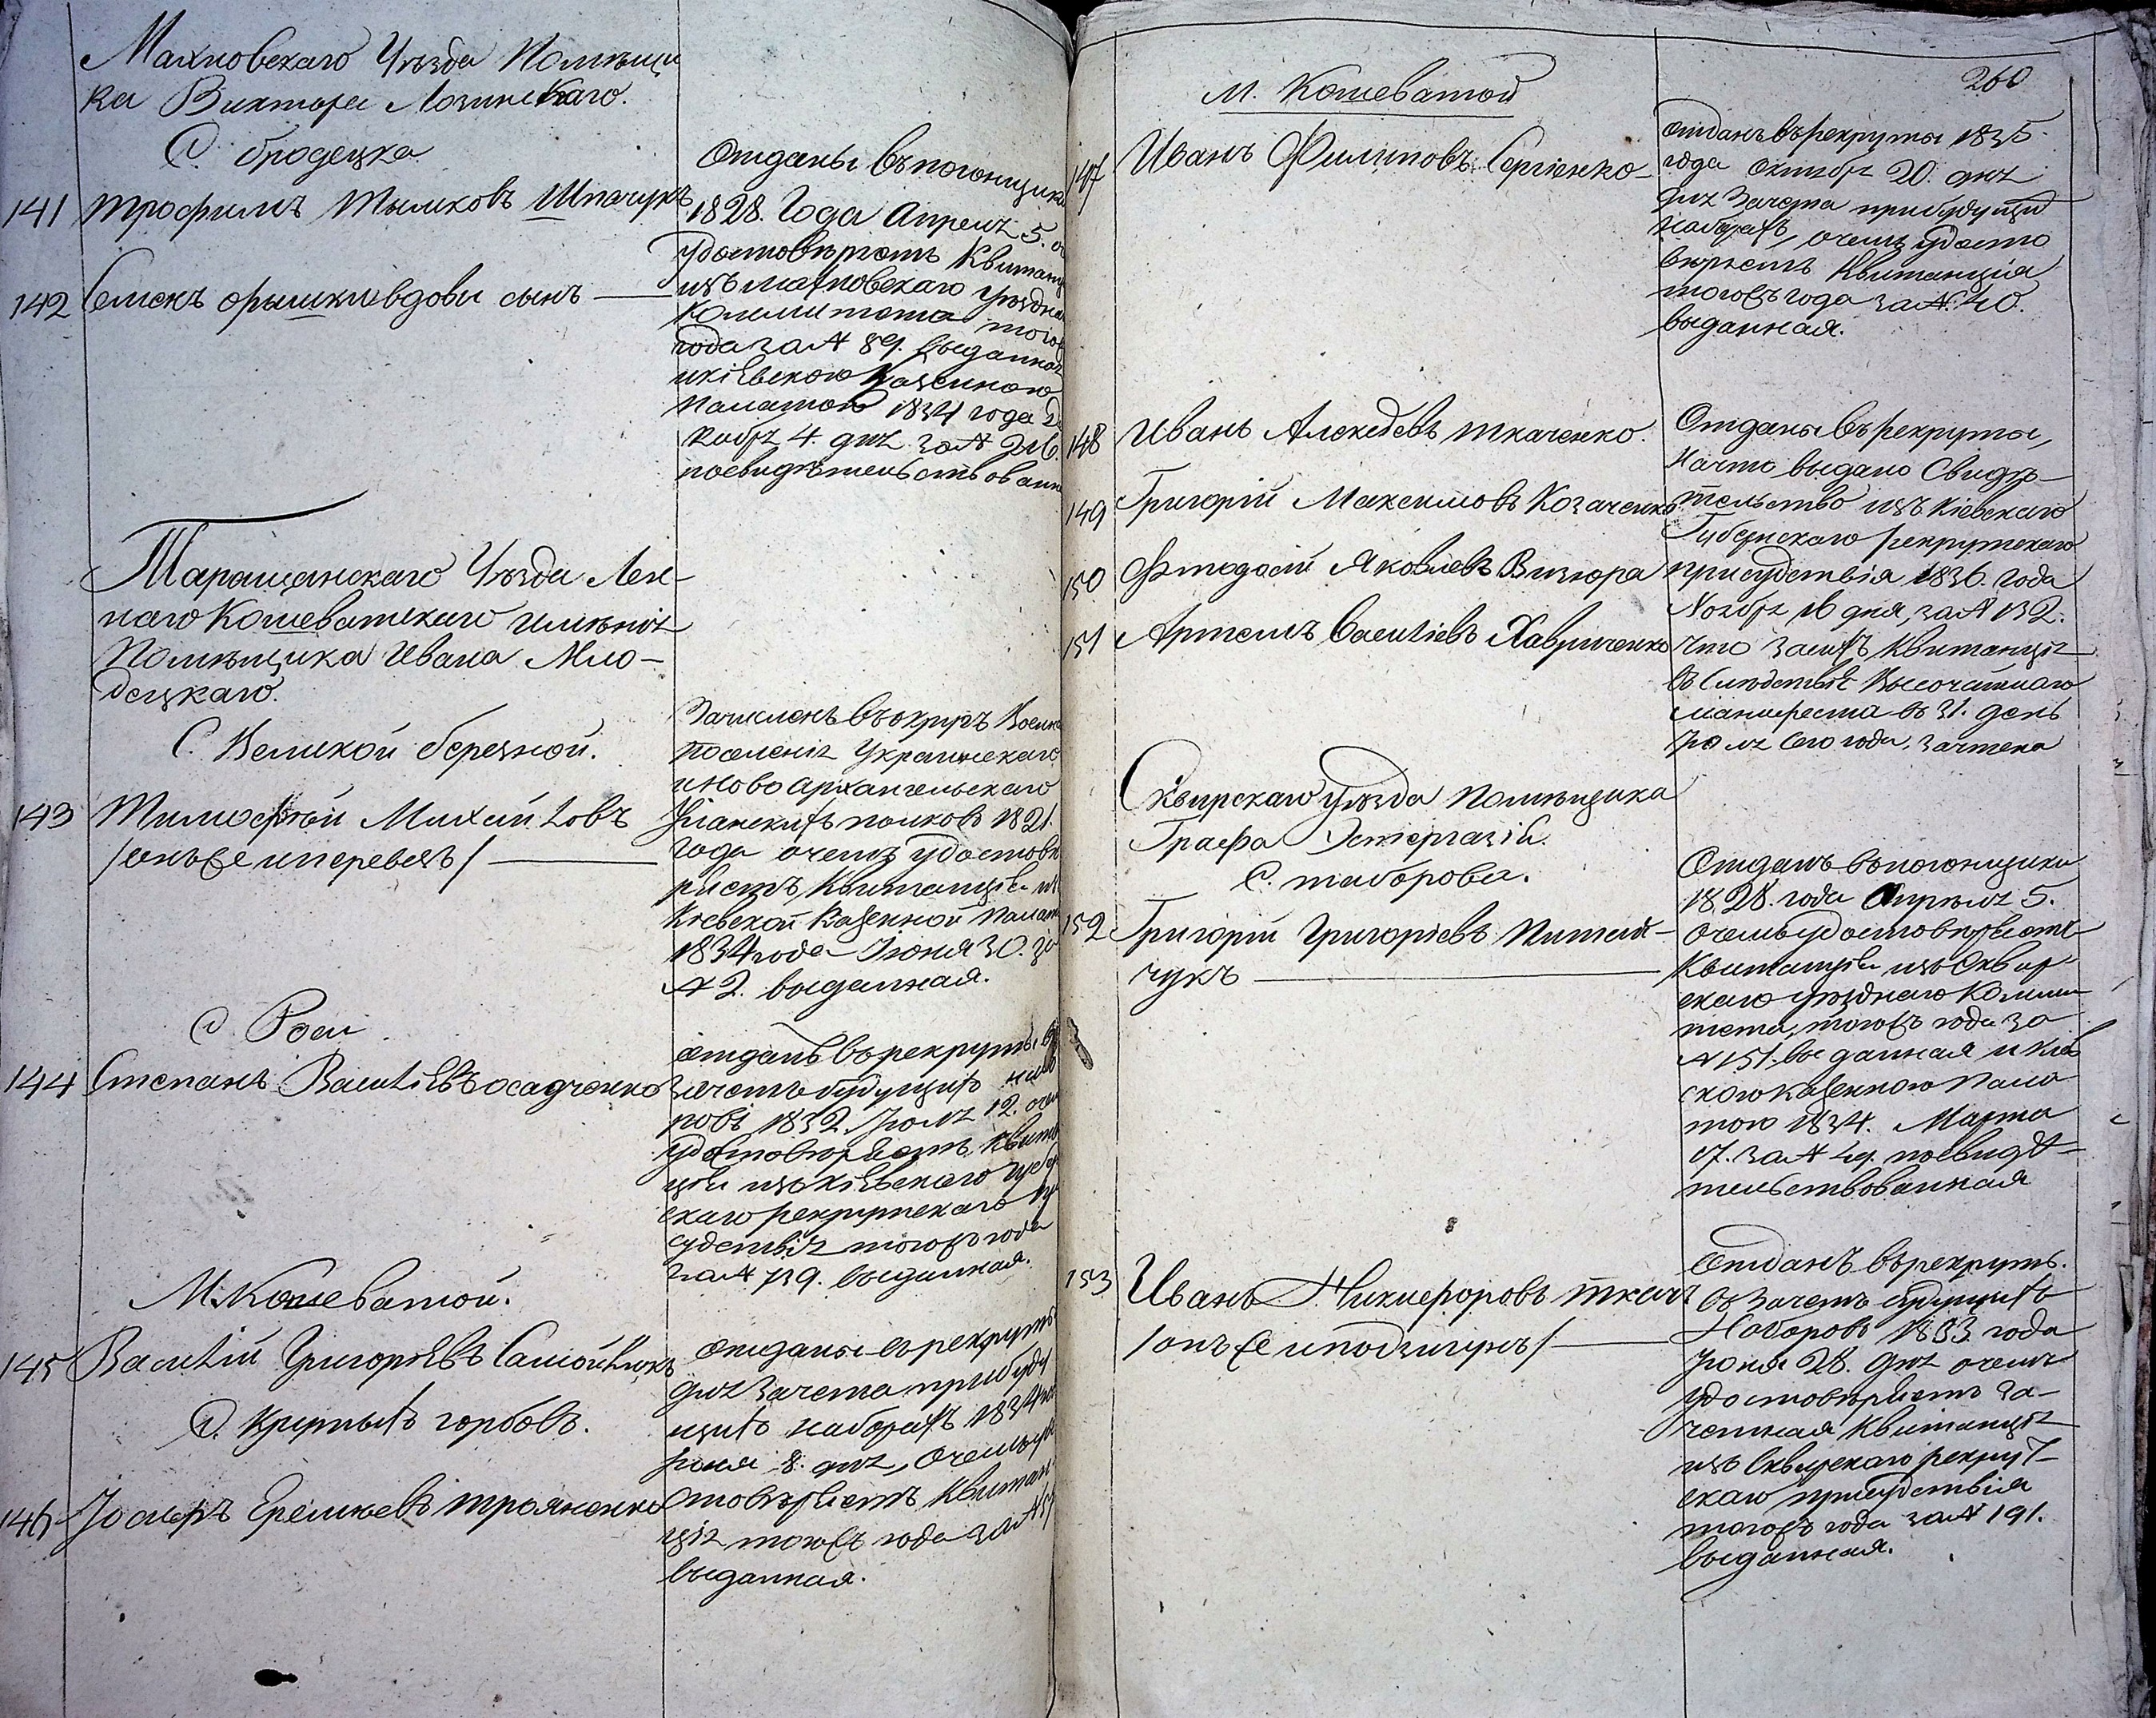 Махновскаго Уѣзда Помѣщи
ка Виктора Лозинскаго.
С. бродецка
141 трофимъ тымковъ Шпачукъ
142 Семенъ орышки вдовы сынъ
Отданы въ погонщики
1828. Года Апреля 5.
удостовѣряетъ Квитанц
изъ махновскаго уѣздна
Комитета того
года за № 89. выданная
и кіевскою Казенною
палатою 1834 года Де
кабря 4. дня за № 216.
посвидѣтельствованн
Таращанскаго Уѣзда Лен-
наго Кошеватскаго имѣнія
Помѣщика Ивана Мло-
децкаго.
С. Великой березной.
143 Тимофѣй Михайловъ
/онъ же и перевезъ/
Зачисленъ въ округъ Военн
поселенія Украинскаго
и ново архангельскаго
Уланскихъ полковъ 1821.
года о чемъ удостовѣ
ряетъ Квитанція из
Кіевской Казенной Палат
1834 года Іюня 30. за
№ 2. выданная.
С. Роси
144 Степанъ Васильевъ осадченко
отданъ въ рекруты въ
зачетъ будущихъ набо
ровъ 1832. Іюля 12. о чем
удостовѣряетъ Квитан
ція изъ кіевскаго губер
скаго рекрутскаго пр
судствія тогожъ года
за № 739. выданная.
М. Кошеватой.
145 Василій Григорьевъ Самойлюкъ
С. крутыхъ горбовъ.
146 Іосифъ Еремѣевъ трояненко
отданы въ рекруты
для Зачета при буду
щихъ наборахъ 1834
Іюня 8. дня, о чемъ удо
стовѣряетъ Квитан
ція тогожъ года за №
выданная.
260
м. Кошеватой
147 Иванъ Филиповъ Сергіенко
отданъ въ рекруты 1835
года октября 20. дня
для Зачета при будущи
наборахъ, о чемъ удосто
вѣряетъ Квитанція
тогожъ года за № 40.
выданная.
148 Иванъ Алексѣевъ ткаченко.
149 Григорій Максимовъ Козаченко
150 Фтодосій Яковлевъ Визюра
151 Артемъ Васильевъ Хавриченко
Отданы въ рекруты,
на что выдано Свидѣ-
тельство изъ Кіевскаго
Губернскаго рекрутскаго
присудствія 1836. года
Ноября 16 дня, за № 132.
что за сихъ Квитанція
въ Слѣдствіе Высочайшаго
манифеста въ 31. день
Іюля сего года, зачтена
Сквирскаго уѣзда помѣщика
Графа Эстергазій.
С. таборова.
152 Григорій Григоріевъ Питей-
чукъ
Отданъ въ погонщики
1828. года Апрѣля 5.
о чемъ удостовѣряетъ
Квитанція изъ Сквир
скаго уѣзднаго Коми
тета, тогожъ года за
№ 151. выданная и кіев
скою казенною пала
тою 1834. Марта
17. за № 49. посвидѣ-
тельствованная
153 Иванъ Никифоровъ ткачъ
/онъ же и подзигиръ/
Отданъ въ рекруты.
въ Зачетъ будущихъ
Наборовъ 1833 года
Іюня 28. дня о чемъ
удостовѣряетъ За-
четная Квитанція
изъ Сквирскаго рекрут-
скаго присудствія
тогожъ года за № 191.
выданная.